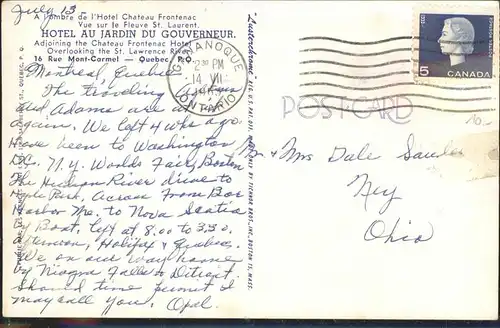 July 13
A l'ombre de l'Hotel Chateau Frontenac
Vue sur le Fleuve St. Laurent.
HOTEL AU JARDIN DU GOUVERNEUR.
Adjoining the Chateau Frontenac Hotel
Overlooking the St. Lawrence River
16 Rue Mont-Carmel — Quebec P.Q.
Montreal, Quebec
The traveling
and Adams are
again. We left 4 wks ago.
Have been to Washington
D.C. N.Y. Worlds Fair, Boston
The Hudson River drive to
Hyde Park, across From Bar
Harbor Me. to Nova Scotia
by Boat, left at 8:00 to 3:30
afternoon, Halifax & Quebec.
We on our way home
by Niagra Falls & Detroit.
Should time permit I
may call you. Opal.
"Lusterchrome"
GANANOQUE
PM
14 VII
ONTARIO
5
CANADA
POST CARD
Mr & Mrs Dale Sander
Ney
Ohio